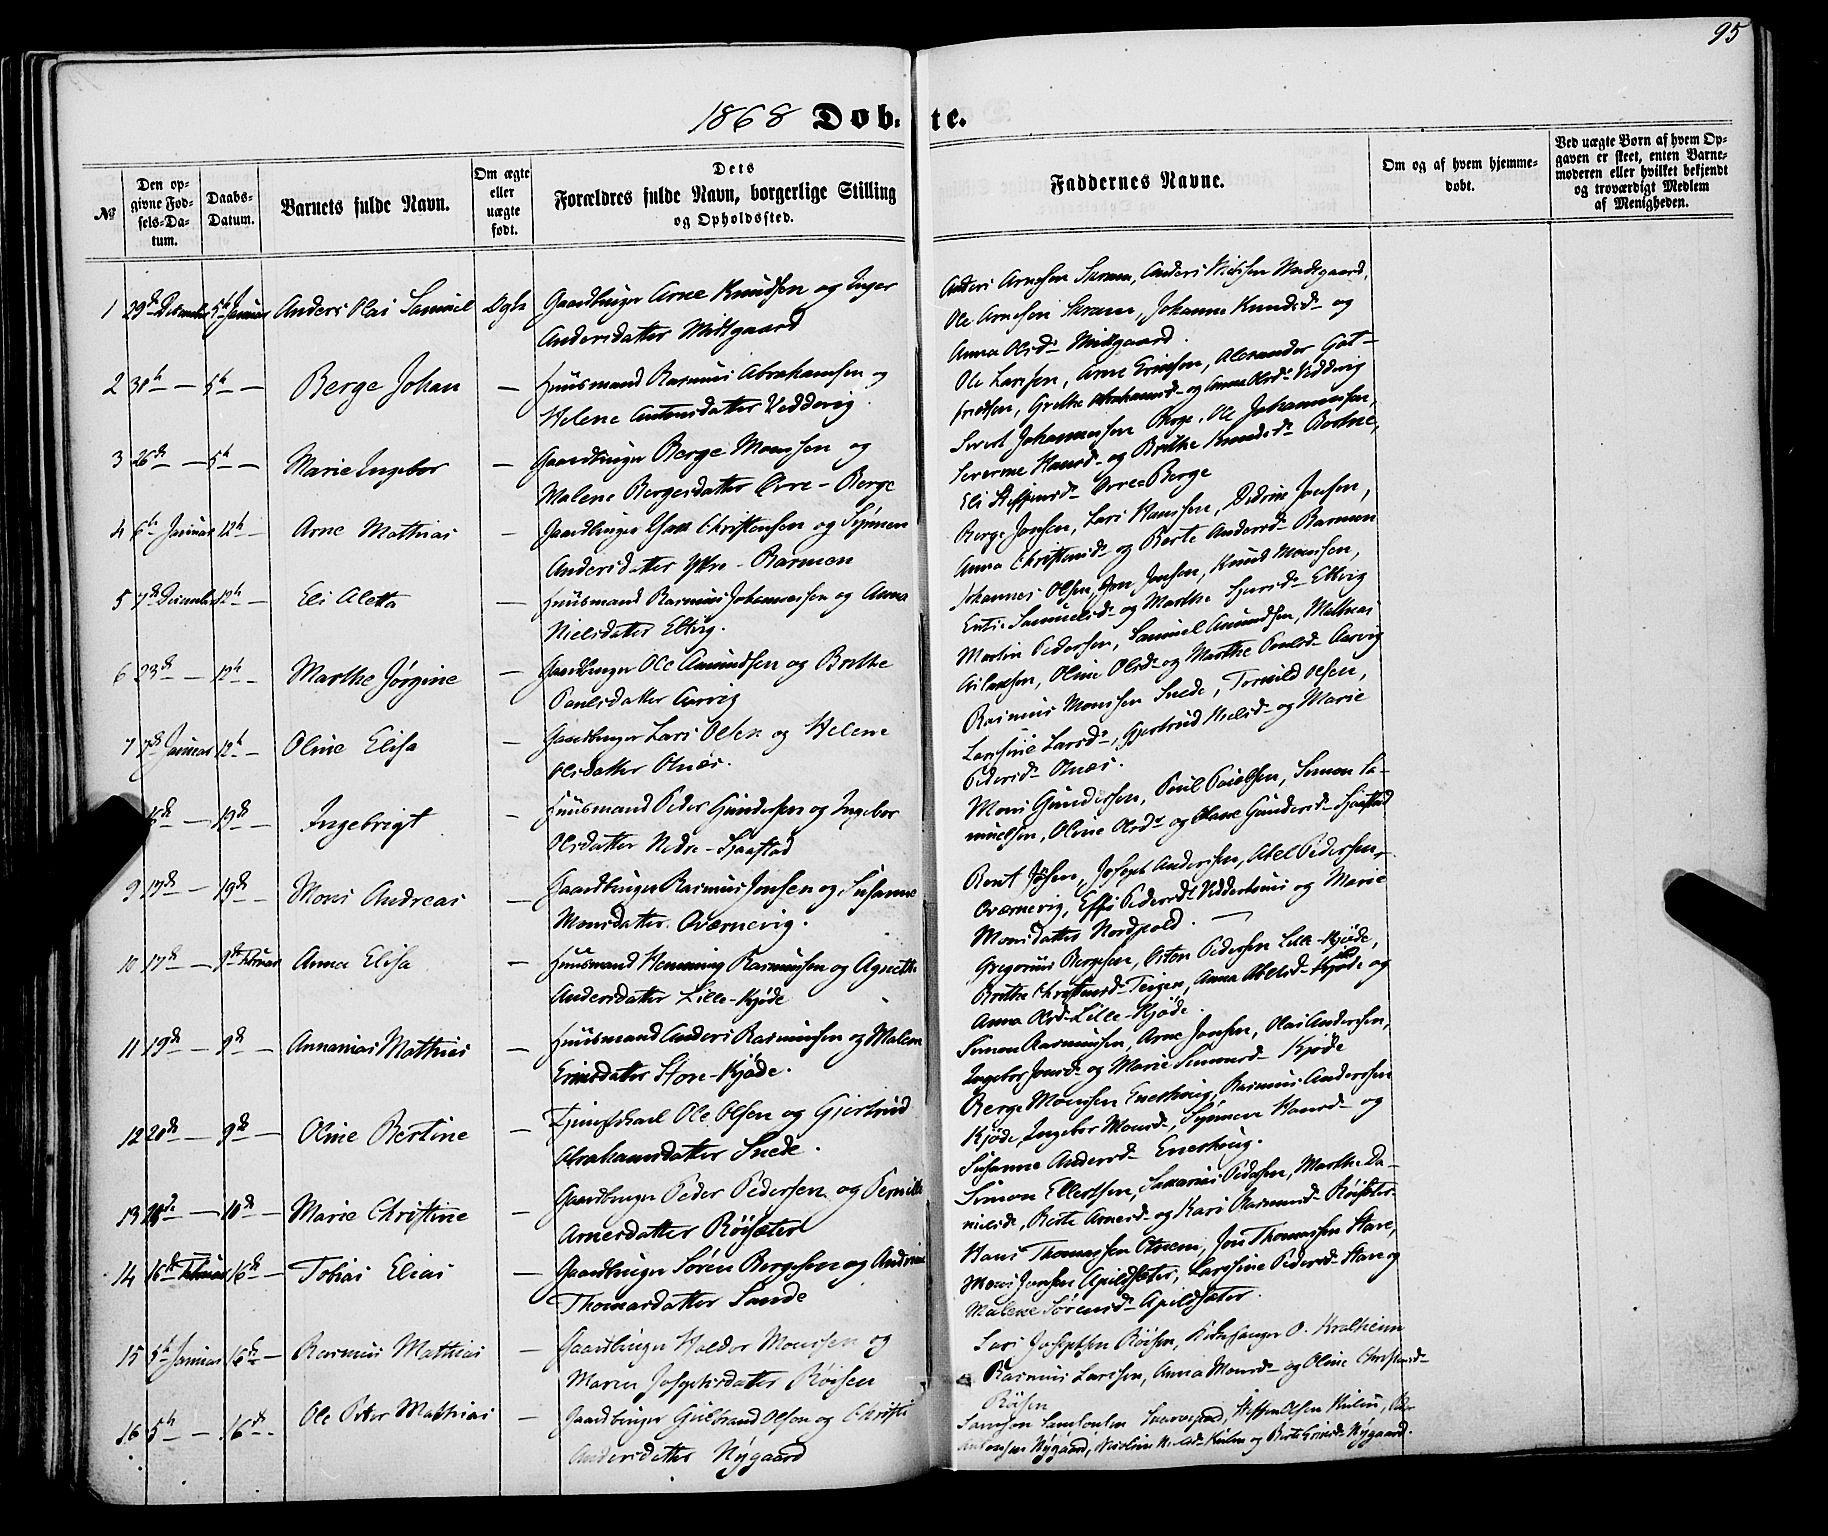 95
1868 Døb-te.
№
Den op-
givne Fød-
sels-Da-
tum.
Daabs-
Datum.
Barnets fulde Navn.
Om ægte
eller
uægte
født.
Dets
Forældres fulde Navn, borgerlige Stilling
og Opholdssted.
Faddernes Navne.
Om og af hvem hjemme-
døbt.
Ved uægte Børn af hvem Op-
gaven er skeet, enten Barne-
moderen eller hvilket bekjendt
og troværdigt Medlem
af Menigheden.
1 29de December 5te Januar Anders Olai Samuel Ægte Gaardbruger Arne Knudsen og Inger
Andersdatter Midtgaard
Anders Arnesen, Anders Nielsen Midtgaard,
Ole Arnesen, Johanne Knudsd- og
Anna Olsd- Midtgaard.
2 30te — 5te — Berge Johan — Huusmand Rasmus Abrahamsen og
Helene Antonsdatter Vedvig.
Ole Larssen, Arne Ericksen, Alexander Got-
fredsen, Grethe Abrahamsd- og Anna Olsd- Vedvig
3 26de — 5te — Marie Ingebor — Gaardbruger Berge Monssen og
Malene Bergesdatter Orre-Berge
Sivert Johannessen Berge, Ole Johannessen,
Severine Hansd- og Brithe Knudsd-
Eli Steffensd- Orre Berge
4 6te Januar 12te Arne Mathias — Gaardbruger Christensen og Synnen
Andersdatter Ytre-Barmen
Berge Jonsen, Lars Hanssen, Didrik Jonsen,
Anna Christensd- og Berte Andersd- Barmen
5 7de December 12te — Eli Aletta — Huusmand Rasmus Johannessen og Anna
Nielsdatter Eltvig.
Johannes Olsen, Jon Jonsen, Knud Monssen,
Samuelsd- og Marthe Sjursd- Eltvig
6 23de — 12te — Marthe Jørgine — Gaardbruger Ole Amundsen og Brithe
Poulsdatter Aarvig
Martin Pedersen, Samuel Amundsen, Mathias
Olsd- og Marthe Poulsd- Aarvig
7 7de Januar 12te — Oline Elisa — Gaardbruger Lars Olsen og Helene
Olsdatter Osnæs.
Rasmus Monssen Snede, Tornild Olsen,
Larsine Larsd-, Gjertrud Nielsd- og Marie
Pedersd- Osnæs.
— 19de — Ingebrigt — Huusmand Peder Gundersen og Ingebor
Olsdatter Nedre-Sjaastad
Mons Gundersen, Poul Poulsen, Simon Sa-
muelsen, Oline Olsd- og Gundersd- Sjaastad
9 17de — 19de — Mons Andreas — Gaardbruger Rasmus Jonsen og Susanne
Monsdatter Oværnevig.
Bent, Joseph Anderssen, Abel Pedersen
Oværnevig, Pedersd- og Marie
Monsdatter Nordpold. —
10 17de — 9de Februar Anna Elisa — Huusmand Henning Rasmussen og Agnethe
Andersdatter Lille-Kjøde
Gregorius Bergesen, Pedersen Lille-Kjøde,
Brithe Christensd- Teigen, Anna Abelsd- Kjøde og
Anna Olsd- Lille-Kjøde.
11 19de — 9de — Annanias Mathias — Huusmand Anders Rasmussen og Malene
Ericksdatter Store-Kjøde.
Simon Rasmussen, Arne Jonsen, Olai Anderssen,
Ingebor Jonsd- og Marie Simonsd- Kjøde
12 20de — 9de — Oline Bertine — Tjenestkarl Ole Olsen og Gjertrud
Abrahamsdatter Snede.
Berge Monssen, Rasmus Anderssen
Kjøde, Ingebor Monsd-, Synnen Hansd- og
Susanne Andersd-
13 — 10de — Marie Christine — Gaardbruger Peder Pedersen og Pernille
Arnesdatter Røisæter
Simon Ellertsen, Zakarias Pedersen, Marthe Da-
nielsd-, Berte Arnesd- og Kari Rasmusd- Røisæter
14 16de Februar 16de — Tobias Elias — Gaardbruger Søren Bergesen og Andrine
Thomasdatter Sande
Hans Thomassen Otnem, Jon Thomassen Stave,
Mons Jonsen Apildsæter, Larsine Pedersd- Stave og
Malene Sørensd- Apildsæter.
15 5te Januar 16de — Rasmus Mathias — Gaardbruger Haldor Monssen og
Maren Josephsdatter Røisen
Lars Josephsen Røisen, Kirkesanger O. Kvalheim
Rasmus Larssen, Anna Monsd- og Oline Christensd-
Røisen
16 5te — 16de — Ole Peter Mathias — Gaardbruger Gulbrand Olsen og Christi
Andersdatter Nygaard
Samson, Steffen Olsen
Nygaard, Nielsd- og Berte Nygaard.